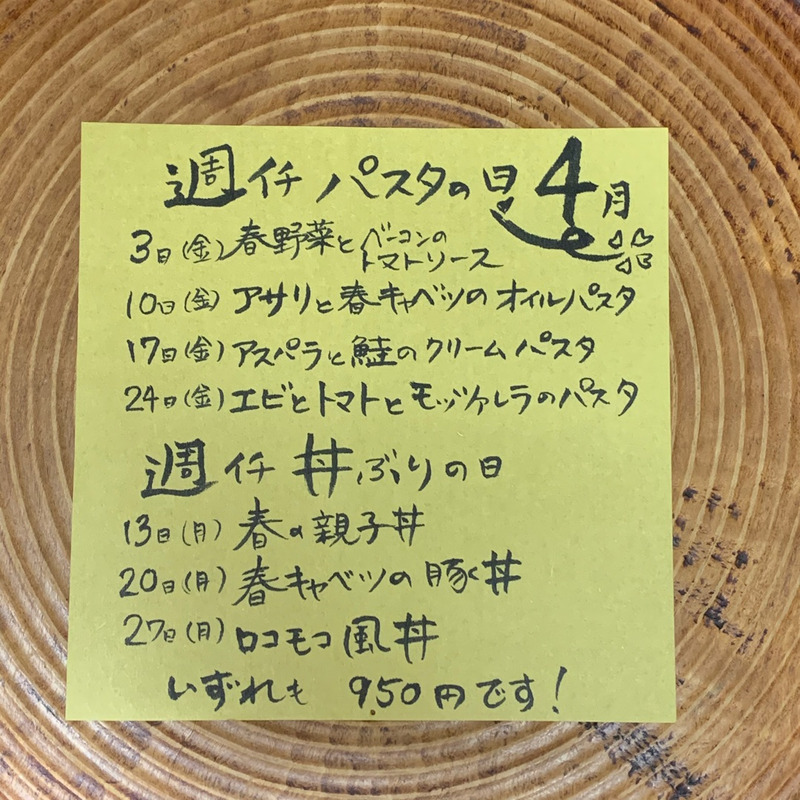 週イチ パスタの日 4月
3日(金) 春野菜とベーコンのトマトソース
10日(金) アサリと春キャベツのオイルパスタ
17日(金) アスパラと鮭のクリームパスタ
24日(金) エビとトマトとモッツァレラのパスタ
週イチ 丼ぶりの日
13日(月) 春の親子丼
20日(月) 春キャベツの豚丼
27日(月) ロコモコ風丼
いずれも 950円です!